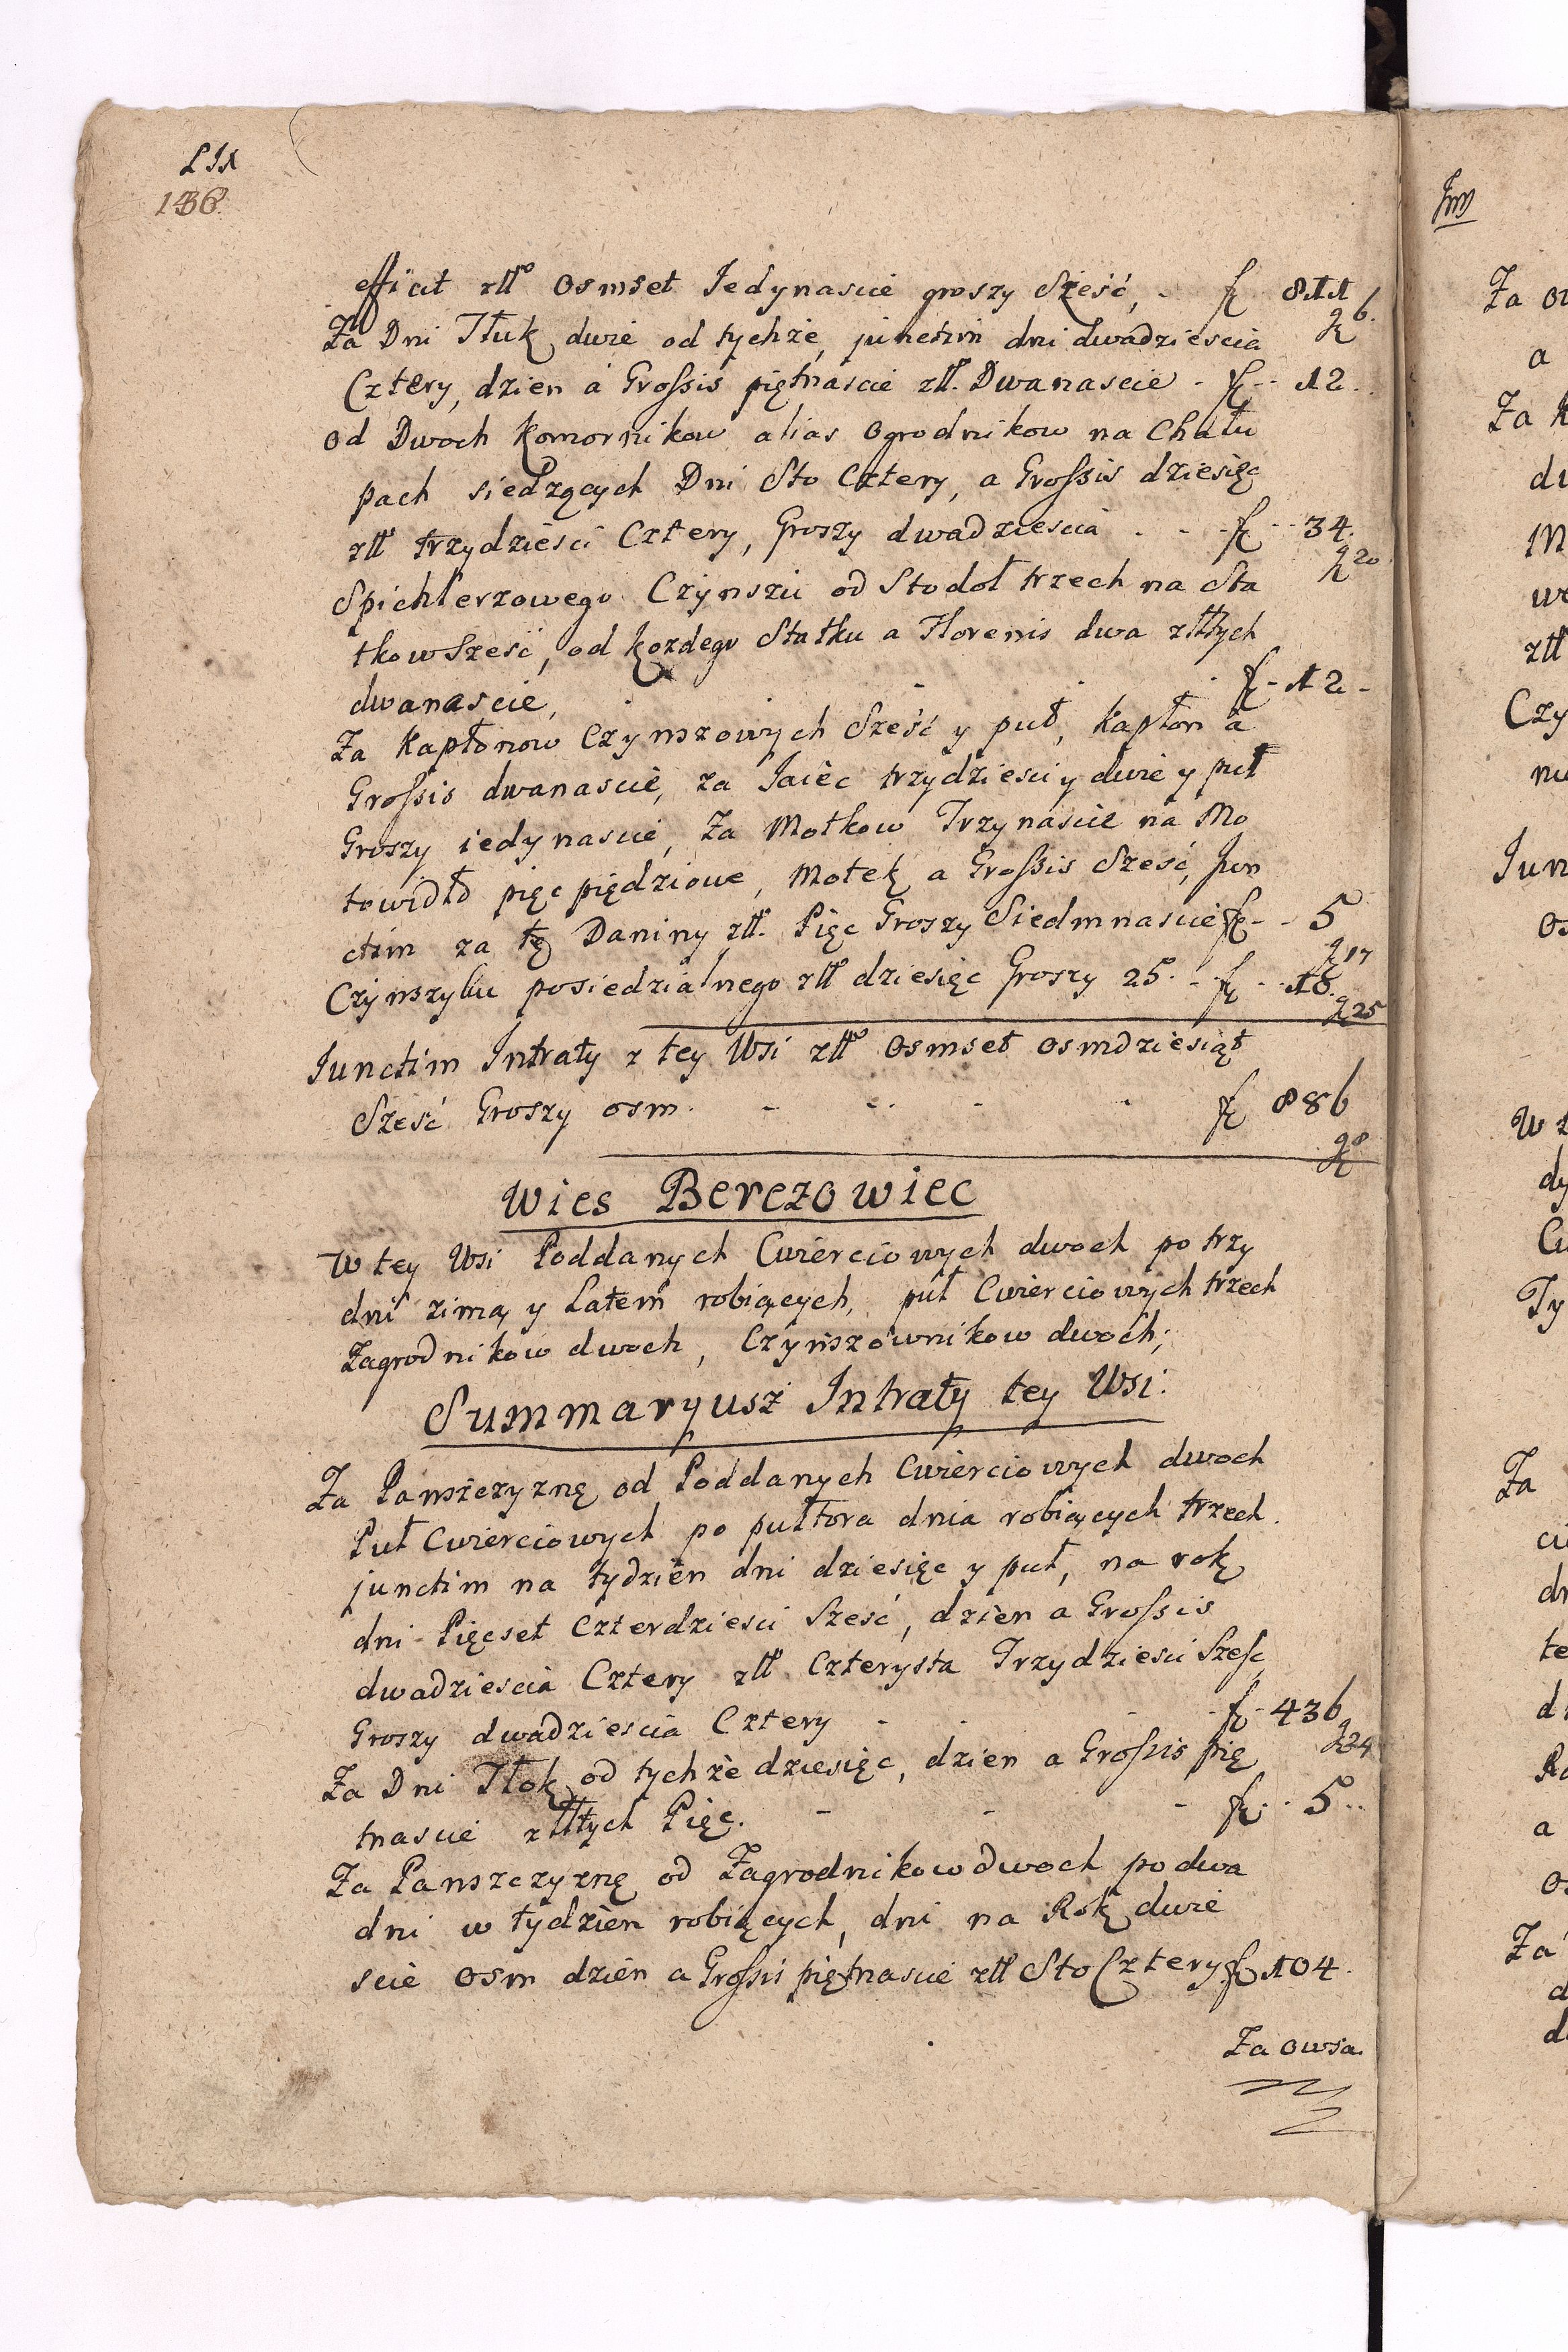 LIX
136.
efficit zlł Osmset Iedynascie groszy Sześć, - fl 811
gr 6.
Za Dni Tłuk dwie od tychże, junctim dni dwadziescia
Cztery, dzien á Grossis piętnascie złł. Dwanascie - fl - - 12.
od Dwoch Komornikow alias Ogrodnikow na Chału
pach siedzących Dni Sto Cztery, a Grossis dziesięc
złł trzydziesci Cztery, Groszy dwadziescia - - - fl - - 34.
gr 20.
Spichlerzowego Czynszu od Stodoł trzech na Sta
tkow Sześć, od kozdego Statku a Florenis dwa złłtych
dwanascie, - - - fl - 12 -
Za Kapłonow Czynszowych Sześć y puł, Kapłon a
Grossis dwanascie, za Iaiec trzydziesci y dwie y puł
Groszy iedynascie, Za Motkow Trzynascie na Mo
towidło pięc piędziowe, Motek a Grossis Sześć, Jun
ctim za tę Daniny złł. Pięc Groszy Siedmnascie fl - - 5
gr 17
Czynszyku posiedzialnego złł dziesięc Groszy 25. - fl - - 10.
gr 25
Iunctim Intraty z tey Wsi złł Osmset osmdziesiąt
Sześć Groszy osm. - - - - fl 886
gr 8
Wies Berezowiec
W tey Wsi Poddanych Cwierciowych dwoch po trzy
dni zimą y Latem robiących, puł Cwierciowych trzech
Zagrodnikow dwoch, Czynszownikow dwoch;
Summaryusz Intraty tey Wsi.
Za Panszczyznę od Poddanych Cwierciowych dwoch
Puł Cwierciowych po pułtora dnia robiących trzech.
junctim na tydzien dni dziesięc y puł, na rok
dni Pięcset Czterdziesci Sześć, dzien a Grossis
dwadziescia Cztery złł Czterysta Trzydziesci Szesc
Groszy dwadziescia Cztery - - - fl - 436
gr 24
Za Dni Tłok od tychże dziesięc, dzien a Grossis pię
tnascie złłtych Pięc. - - - fl - - 5 - -
Za Panszczyznę od Zagrodnikow dwoch po dwa
dni w tydzien robiących, dni na Rok dwie
scie osm dzien a Grossis piętnascie złł Sto Cztery fl 104.
Za owsa.